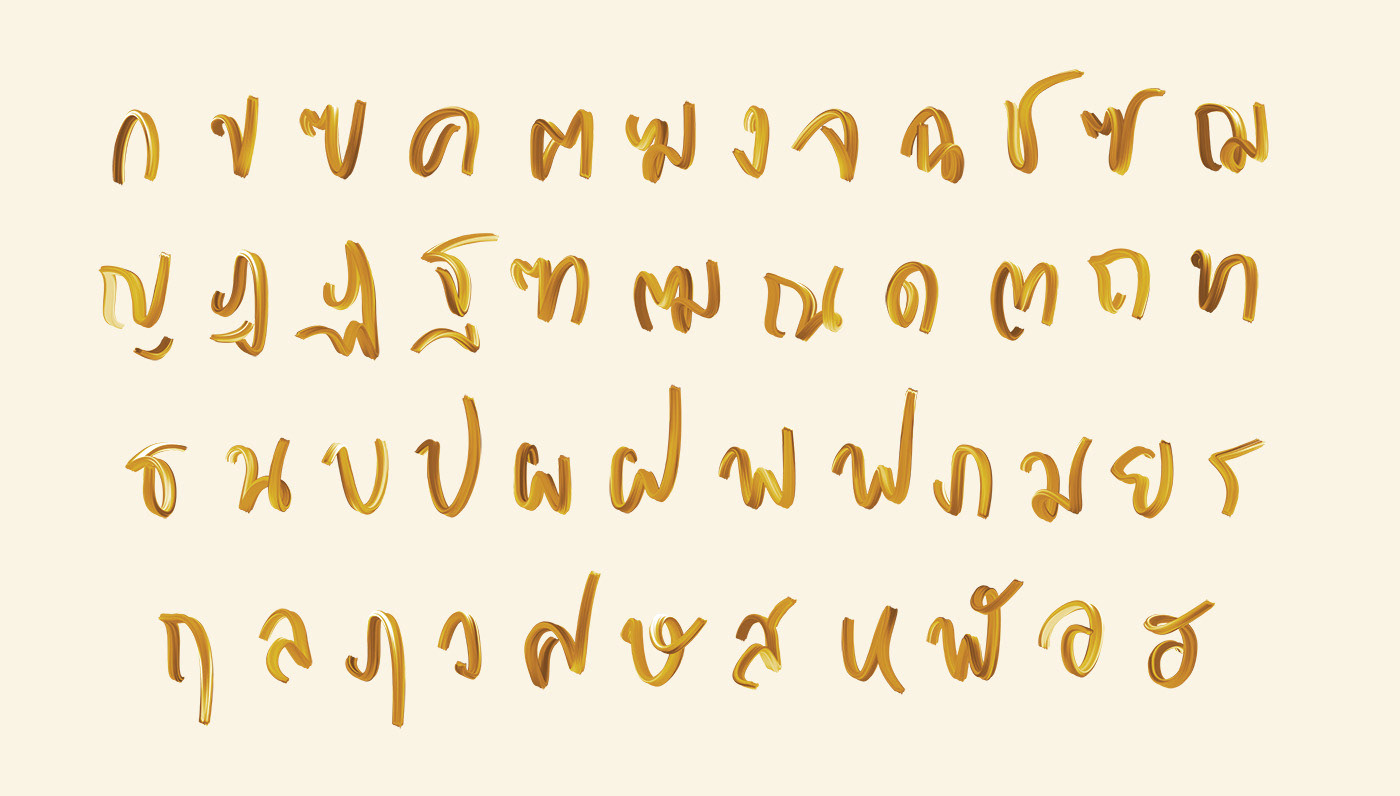 ก ข ฃ ค ฅ ฆ ง จ ฉ ช ซ ฌ
ญ ฎ ฏ ฐ ฑ ฒ ณ ด ต ถ ท
ธ น บ ป ผ ฝ พ ฟ ภ ม ย ร
ฤ ล ฦ ว ศ ษ ส ห ฬ อ ฮ